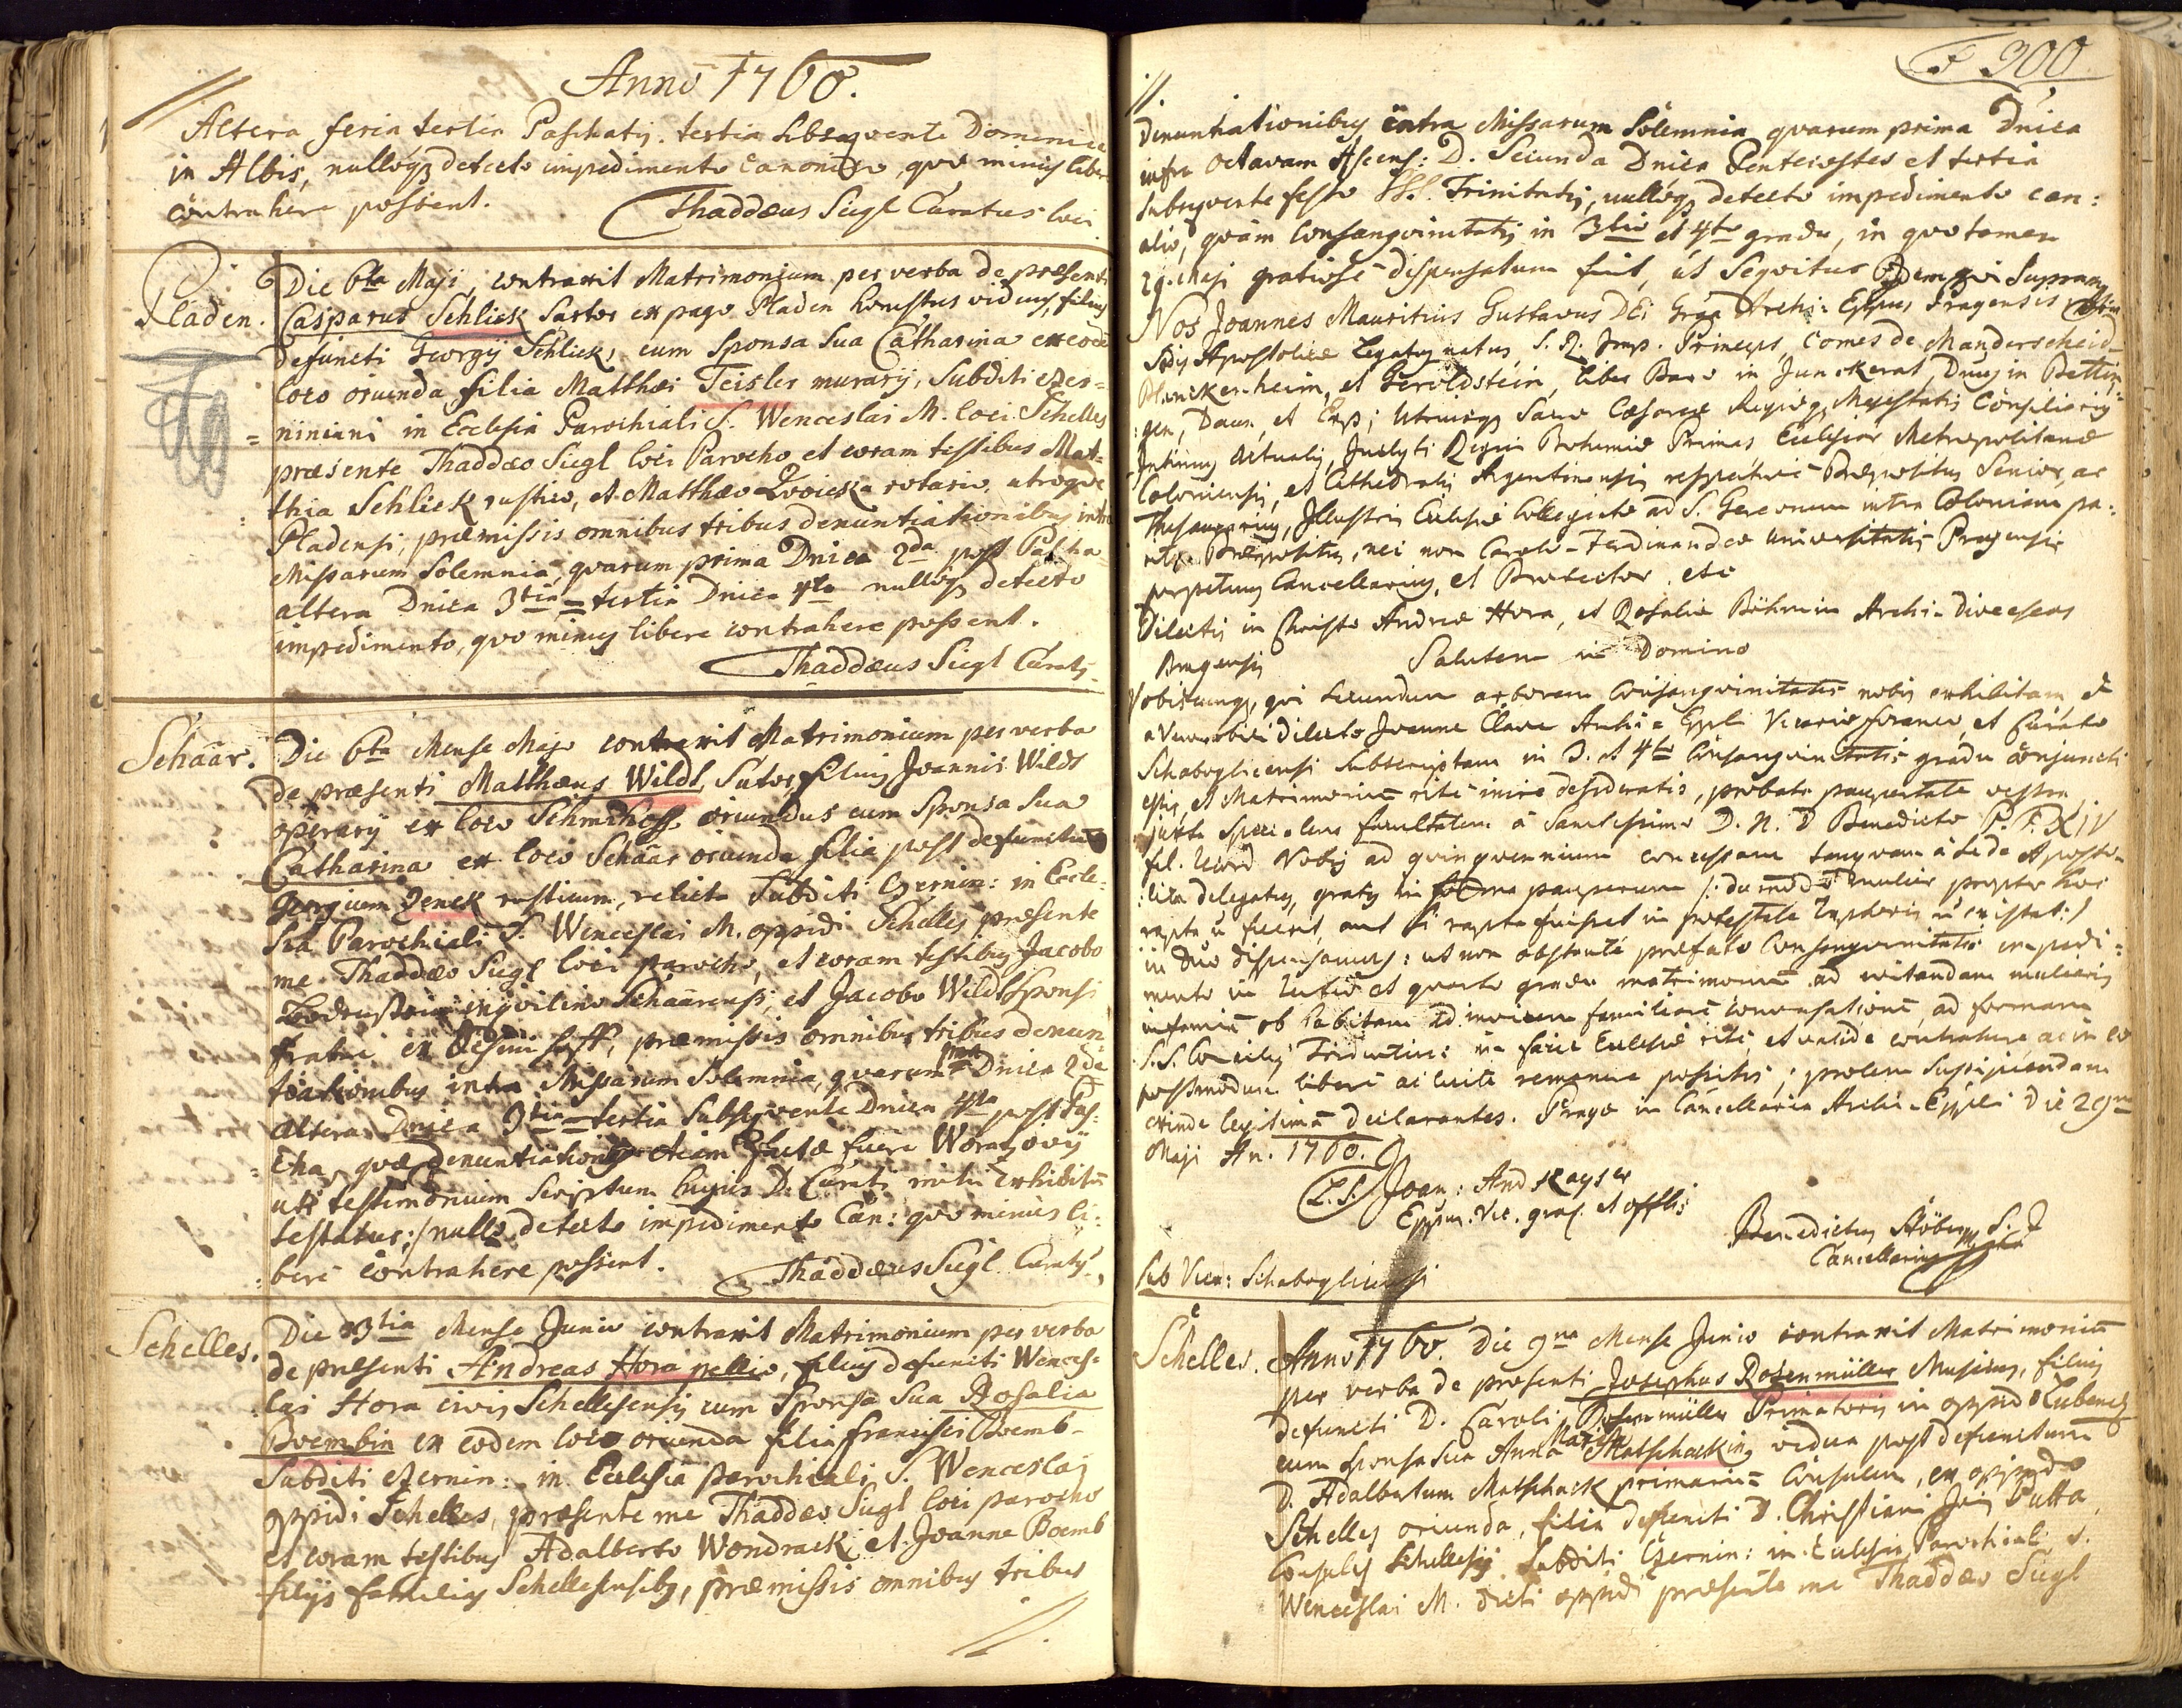 Anno 1760.
Altera feria tertia Paschatis. tertia subsequente Dominica
in Albis, nulloq₃ detecto impedimento canonico, quo minus liberè
contrahere possent.
Thaddæus Siegl Curatus loci
Pladen.
Die 6ta Maji, contraxit Matrimonium per verba de præsenti
Casparus Schliek Sartor ex pago Pladen honestus viduus, filius
defuncti Georgÿ Schliek, cum Sponsa Sua Catharina ex eodē
loco oriunda filia Matthæi Teisler murarÿ, Subditi czer=
=niniani in Ecclesia Parochiali S. Wenceslai M. loci Schelles
præsente Thaddæo Siegl loci Parocho et coram testibus Mat=
thia Schliek rustico, et Matthæo rotario, utroque
Pladensi, præmissis omnibus tribus denuntiationibus intra
Missarum Solemnia quarum prima Dnica 2da post Pascha
altera Dnica 3tia = tertia Dnica 4ta nulloq₃ detecto
impedimento, quo minus libere contrahere possent.
Thaddæus Siegl Curatus
Schaar.
Die 6ta Mense Majo contraxit Matrimonium per verba
de præsenti Matthæus Wildt, Sutor, filius Joannis Wildt
operarÿ ex loco oriundus cum Sponsa Sua
Catharina ex loco Schaar oriunda filia post defunctum
Georgium Zenek rusticum, relicta Subditi Czernin: in Eccle=
sia Parochiali S. Wenceslai M. oppidi Schelles præsente
me Thaddæo Siegl loci parocho, et coram testibus Jacobo
inquilino Schaarensi, et Jacobo Wildt Sponsi
fratre ex præmissis omnibus tribus denun=
tiationibus intra Missarum Solemnia, quarum ima Dnica 2da
altera Dnica 3tia = tertia Subsequente Dnica 4ta post Pas=
cha, quæ denuntiationes etiam factæ fuere
uti testimonium Scriptum hujus D. Curati mihi Exhibitū
testatur:/ nullo detecto impedimento Can: quo minus li=
berè contrahere possent.
Thaddæus Siegl Curatus
Schelles.
Die 3tia Mense Junio contraxit Matrimonium per verba
de præsenti Andreas Hora pellio, filius defuncti Wences=
lai Hora civis Schellesensis cum Sponsa Sua Rosalia
Boembin ex eodem loco oriunda filia francisci Boemb
Subditi czernin: in Ecclesia parochiali S. Wenceslai
oppidi Schelles, præsente me Thaddæo Siegl loci parocho
et coram testibus Adalberto Wondraek, et Joanne Boemb
filÿs familias Schellesensibus, præmissis omnibus tribus
//.
F 300
//.
denuntiationibus intra Missarum Solemnia quarum prima Dnica
infra octavam Ascens: D. Secunda Dnica Pentecostes et tertia
subsequente festo SS. Trinitatis, nulloq₃ detecto impedimento can:
alio, quàm Consanguinitatis in 3tio et 4to gradu, in quo tamen
29. Maji gratiosè dispensatum fuit, ut Sequitur
Nos Joannes Mauritius Gustavus DEi Grãa Archi-Eppus Pragensis
Sedis Apostolicæ Legatus natus, S. R. Imp. Princeps, Comes de Manderscheid
Blanckenheim, et Geroldstein, liber Baro in Junckerat, Dnus in Bettin=
gen, Daun, et Erp; Utriusq₃ Sacræ Cæsareæ Regiæq₃ Majestatis Consiliarius
Intimus Actualis, Inclyti Regni Bohemiæ Primas, Ecclesiæ Metropolitanæ
Coloniensis, et Cathedralis Argentinensis respectivè Præpositus Senior, ac
Thesaurarius, Illustris Ecclesiæ Collegiatæ ad S. Gereonem intra Coloniam pa=
Præpositus, nec non Carolo-Ferdinandeæ Universitatis Pragensis
perpetuus Cancellarius, et Protector. etc
Dilectis in Christo Andreæ Hora, et Rosaliæ Böhmin Archi-Dioeceseos
Pragensis
Salutem in Domino
Vobiscumq₃, qui secundum arborem Consanguinitatis nobis exhibitam, et
a Venerabili dilecto Joanne Clave Archi-Eppli Vicario foraneo, et Curato
Schaboglicensi Subscriptam in 3. et 4to Consanguinitatis gradu conjuncti
estis, et Matrimonium ritè inire desideratis, probata paupertate vestra,
juxta specialem facultatem à Sanctissimo D. N. D Benedicto P. P. XIV
fel. record. Nobis ad quinquennium concessam tanquam à Sede Aposto=
lica delegatus, gratis in forma pauperum /: dum modo mulier propter hoc
rapta n̄ fuerit, aut si rapta fuisset in potestate raptoris n̄ existat:/
in Dno dispensamus: ut non obstante præfato Consanguinitatis impedi=
mento in tertio et quarto gradu matrimonium ad evitandam mulieris
infamiā ob habitam ad invicem familiarē conversationē, ad formam
S.S. Concilÿ Tridentini: in facie Ecclesiæ ritè, et validè contrahere, ac in eo
postmodum liberè ac licitè remanere possitis; prolem Suscipiendam
exinde legitimā declarantes. Pragæ in Cancellaria Archi-Eppli Die 29na
Maji An. 1760.
L.S. Joan: And Kayser
Eppus. Vic. gral. et offlis
Benedictus Stöber S. J
Cancellarius
Sub Vica: Schaboglicensi
Schelles.
Anno 1760. Die 9na Mense Junio contraxit Matrimoniū
per verba de præsenti Josephus Rosenmüller Musicus, filius
defuncti D. Caroli Rosenmüller Primatoris in oppido Lubenz
cum Sponsa Sua Anna Maria Matschackin, vidua post defunctum
D. Adalbertum Matschack primariū Consulem, ex oppido
Schelles oriunda, filia defuncti D. Christiani Putta,
Consulis Schellesÿ Subditi Czernin: in Ecclesia Parochiali S.
Wenceslai M. dicti oppidi præsente me Thaddæo Siegl